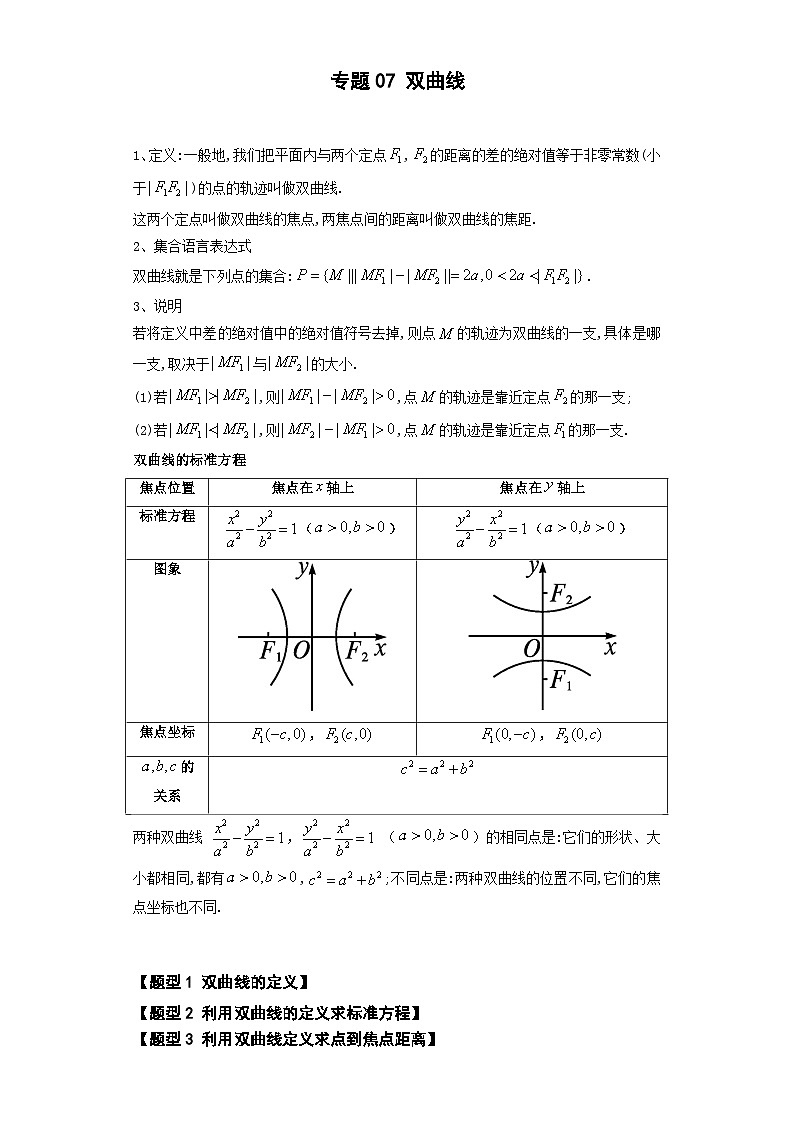 专题07 双曲线
1、定义:一般地,我们把平面内与两个定点F₁,F₂的距离的差的绝对值等于非零常数(小
于|F₁F₂|)的点的轨迹叫做双曲线.
这两个定点叫做双曲线的焦点,两焦点间的距离叫做双曲线的焦距.
2、集合语言表达式
双曲线就是下列点的集合:P={M|||MF₁|−|MF₂||=2a,0<2a<|F₁F₂|}.
3、说明
若将定义中差的绝对值中的绝对值符号去掉,则点M的轨迹为双曲线的一支,具体是哪
一支,取决于|MF₁|与|MF₂|的大小.
(1)若|MF₁|>|MF₂|,则|MF₁|−|MF₂|>0,点M的轨迹是靠近定点F₂的那一支;
(2)若|MF₁|<|MF₂|,则|MF₂|−|MF₁|>0,点M的轨迹是靠近定点F₁的那一支.
双曲线的标准方程
焦点位置 焦点在x轴上 焦点在y轴上
标准方程 x²/a²−y²/b²=1(a>0,b>0) y²/a²−x²/b²=1(a>0,b>0)
图象
y
F₁ O F₂ x
y
F₂
O x
F₁
焦点坐标 F₁(−c,0),F₂(c,0) F₁(0,−c),F₂(0,c)
a,b,c的 c²=a²+b²
关系
两种双曲线 x²/a²−y²/b²=1,y²/a²−x²/b²=1 (a>0,b>0)的相同点是:它们的形状、大
小都相同,都有a>0,b>0,c²=a²+b²;不同点是:两种双曲线的位置不同,它们的焦
点坐标也不同.
【题型1 双曲线的定义】
【题型2 利用双曲线的定义求标准方程】
【题型3 利用双曲线定义求点到焦点距离】